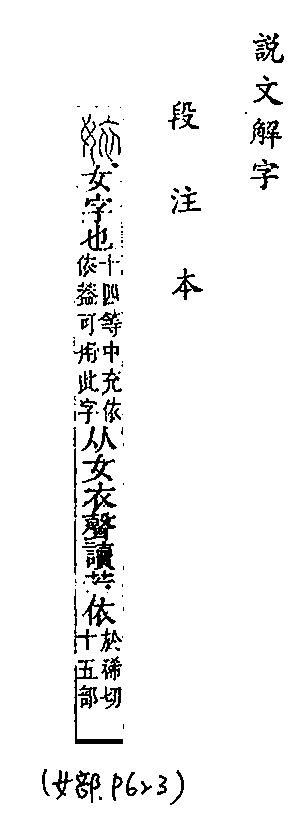 説文解字
段注本
㛄女字也十四等中充依依葢可用此字从女衣聲讀若依於稀切十五部
(女部.P623)